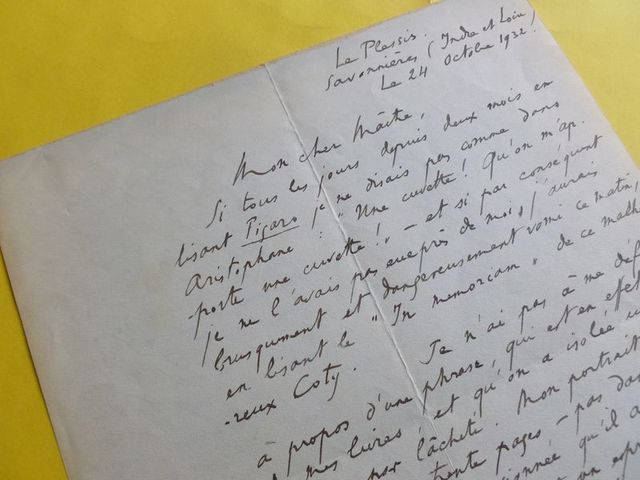 Le Plessis.
Savonnières (Indre et Loire)
Le 24 Octobre 1932.
Mon cher Maître,
Si tous les jours depuis deux mois en
lisant Figaro je ne disais pas comme dans
Aristophane : "Une cuvette ! Qu'on m'ap-
porte une cuvette !" – et si par conséquent
je ne l'avais pas eue près de moi, j'aurais
brusquement et dangereusement vomi ce matin,
en lisant le "In memoriam" de ce malheu
-reux Coty. Je n'ai pas à me déf
à propos d'une phrase, qui est en effet
mes livres et qu'on a isolée
par lâcheté. Mon portrait
trente pages – pas dans
qu'il a